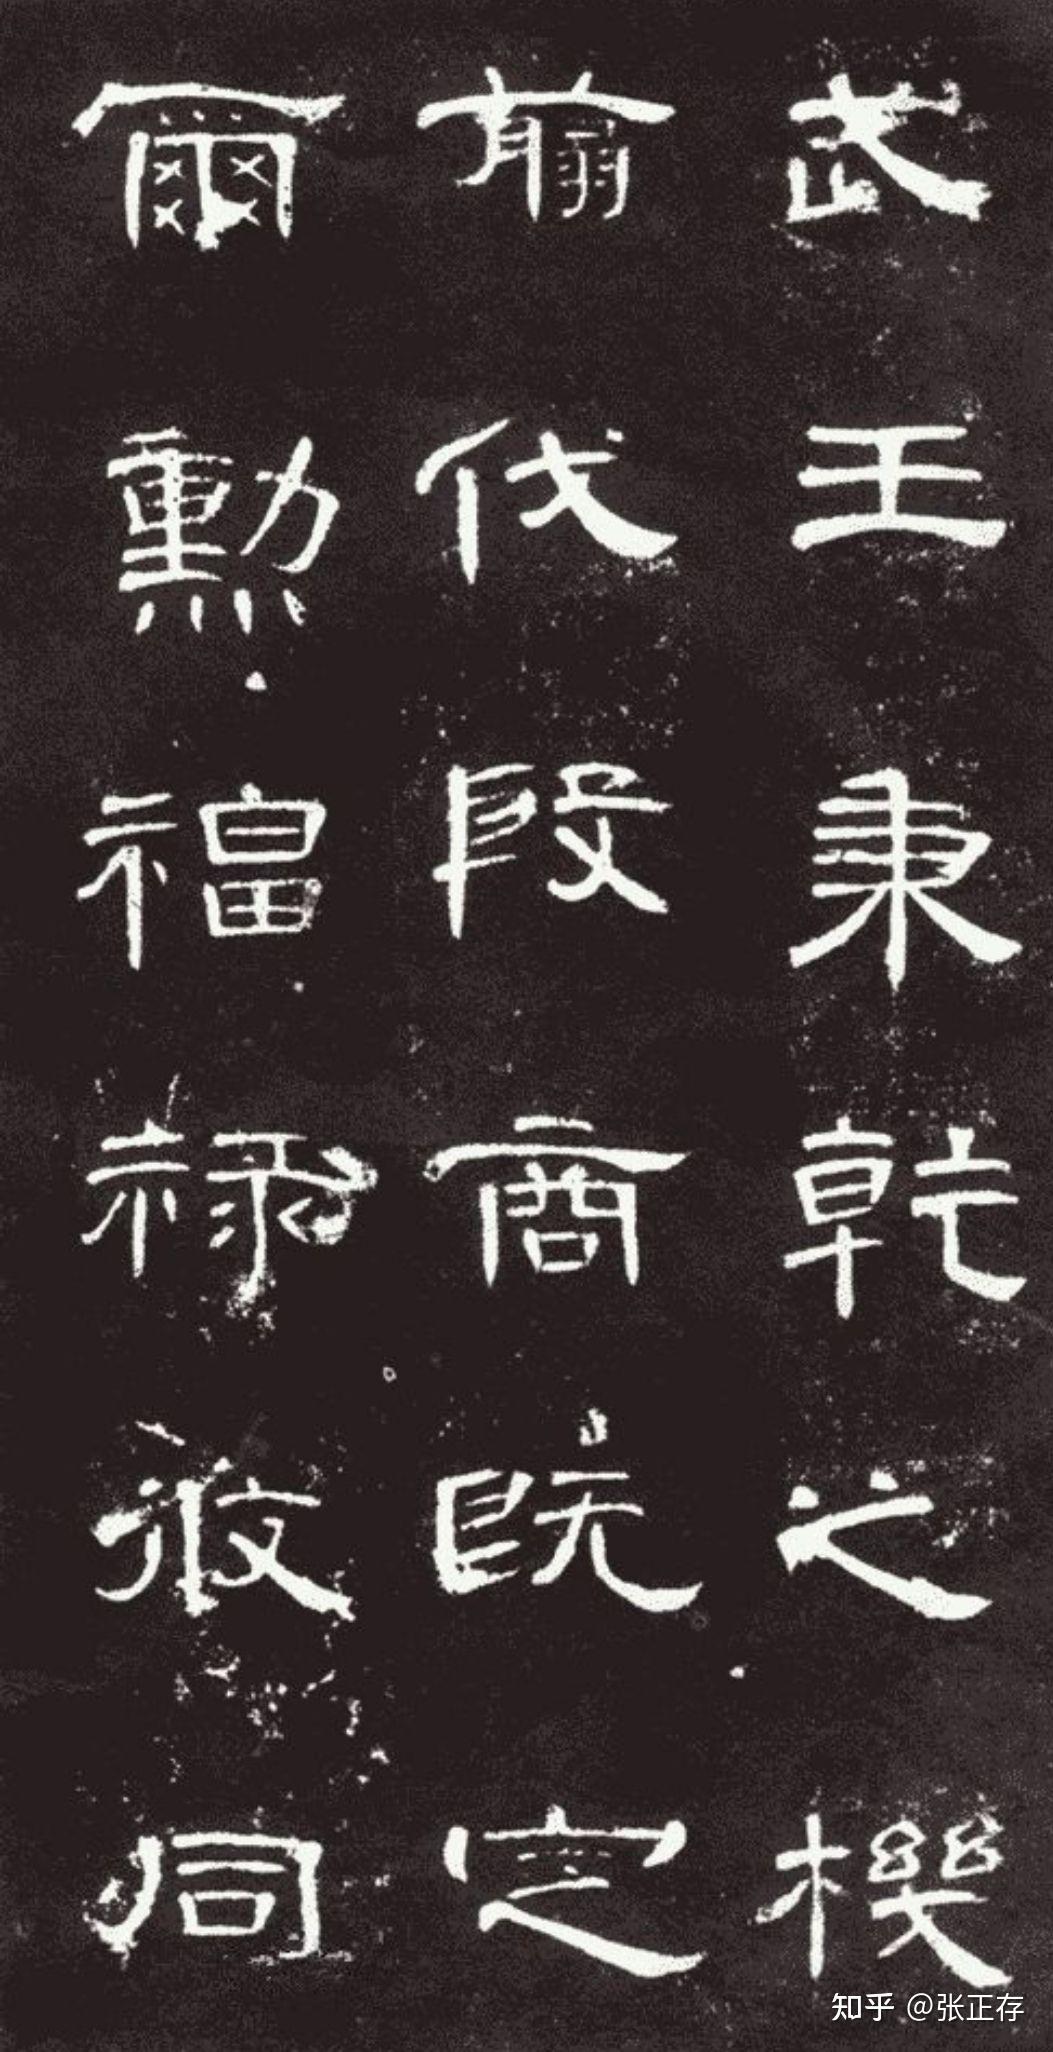 武王秉乾之機
翦伐殷商既定
爾勳福祿攸同
知乎 @张正存